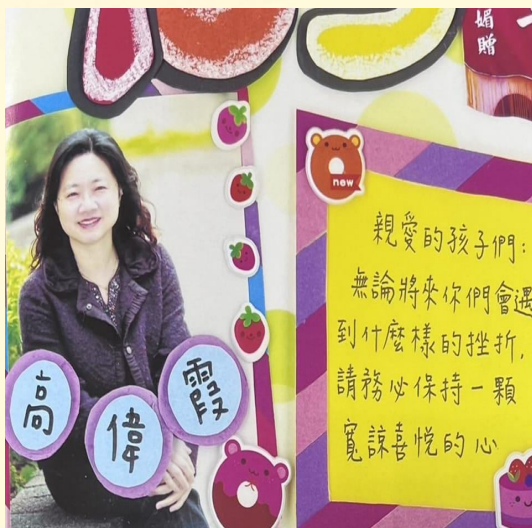 媚贈
new
高偉霞
親愛的孩子們:
無論將來你們會遇
到什麼樣的挫折,
請務必保持一顆
寬諒喜悅的心